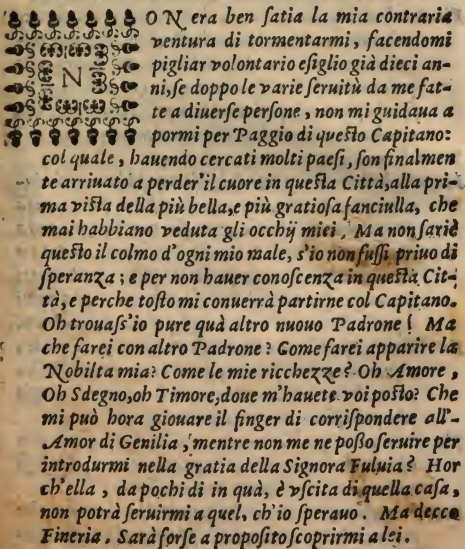 NON era ben ſatia la mia contraria
ventura di tormentarmi, facendomi
pigliar volontario eſiglio già dieci an-
ni, ſe doppo le varie ſeruitù da me fat-
te a diuerſe perſone, non mi guidaua a
pormi per Paggio di queſto Capitano:
col quale, hauendo cercati molti paeſi, ſon finalmen
te arriuato a perder'il cuore in queſta Città, alla pri-
ma viſta della più bella, e più gratioſa fanciulla, che
mai habbiano veduta gli occhij miei. Ma non ſariè
queſto il colmo d'ogni mio male, s'io non fuſſi priuo di
ſperanza; e per non hauer conoſcenza in queſta Cit-
tà, e perche toſto mi conuerrà partirne col Capitano.
Oh trouaſs'io pure quà altro nuouo Padrone! Ma
che farei con altro Padrone? Come farei apparire la
Nobilta mia? Come le mie ricchezze? Oh Amore,
Oh Sdegno, oh Timore, doue m'hauete voi poſto? Che
mi può hora giouare il finger di corriſpondere all'-
Amor di Genilia, mentre non me ne poſſo ſeruire per
introdurmi nella gratia della Signora Fuluia? Hor
ch'ella, da pochi dì in quà, è vſcita di quella caſa,
non potrà ſeruirmi a quel, ch'io ſperauo. Ma decco
Fineria. Sarà forſe a propoſito ſcoprirmi a lei.